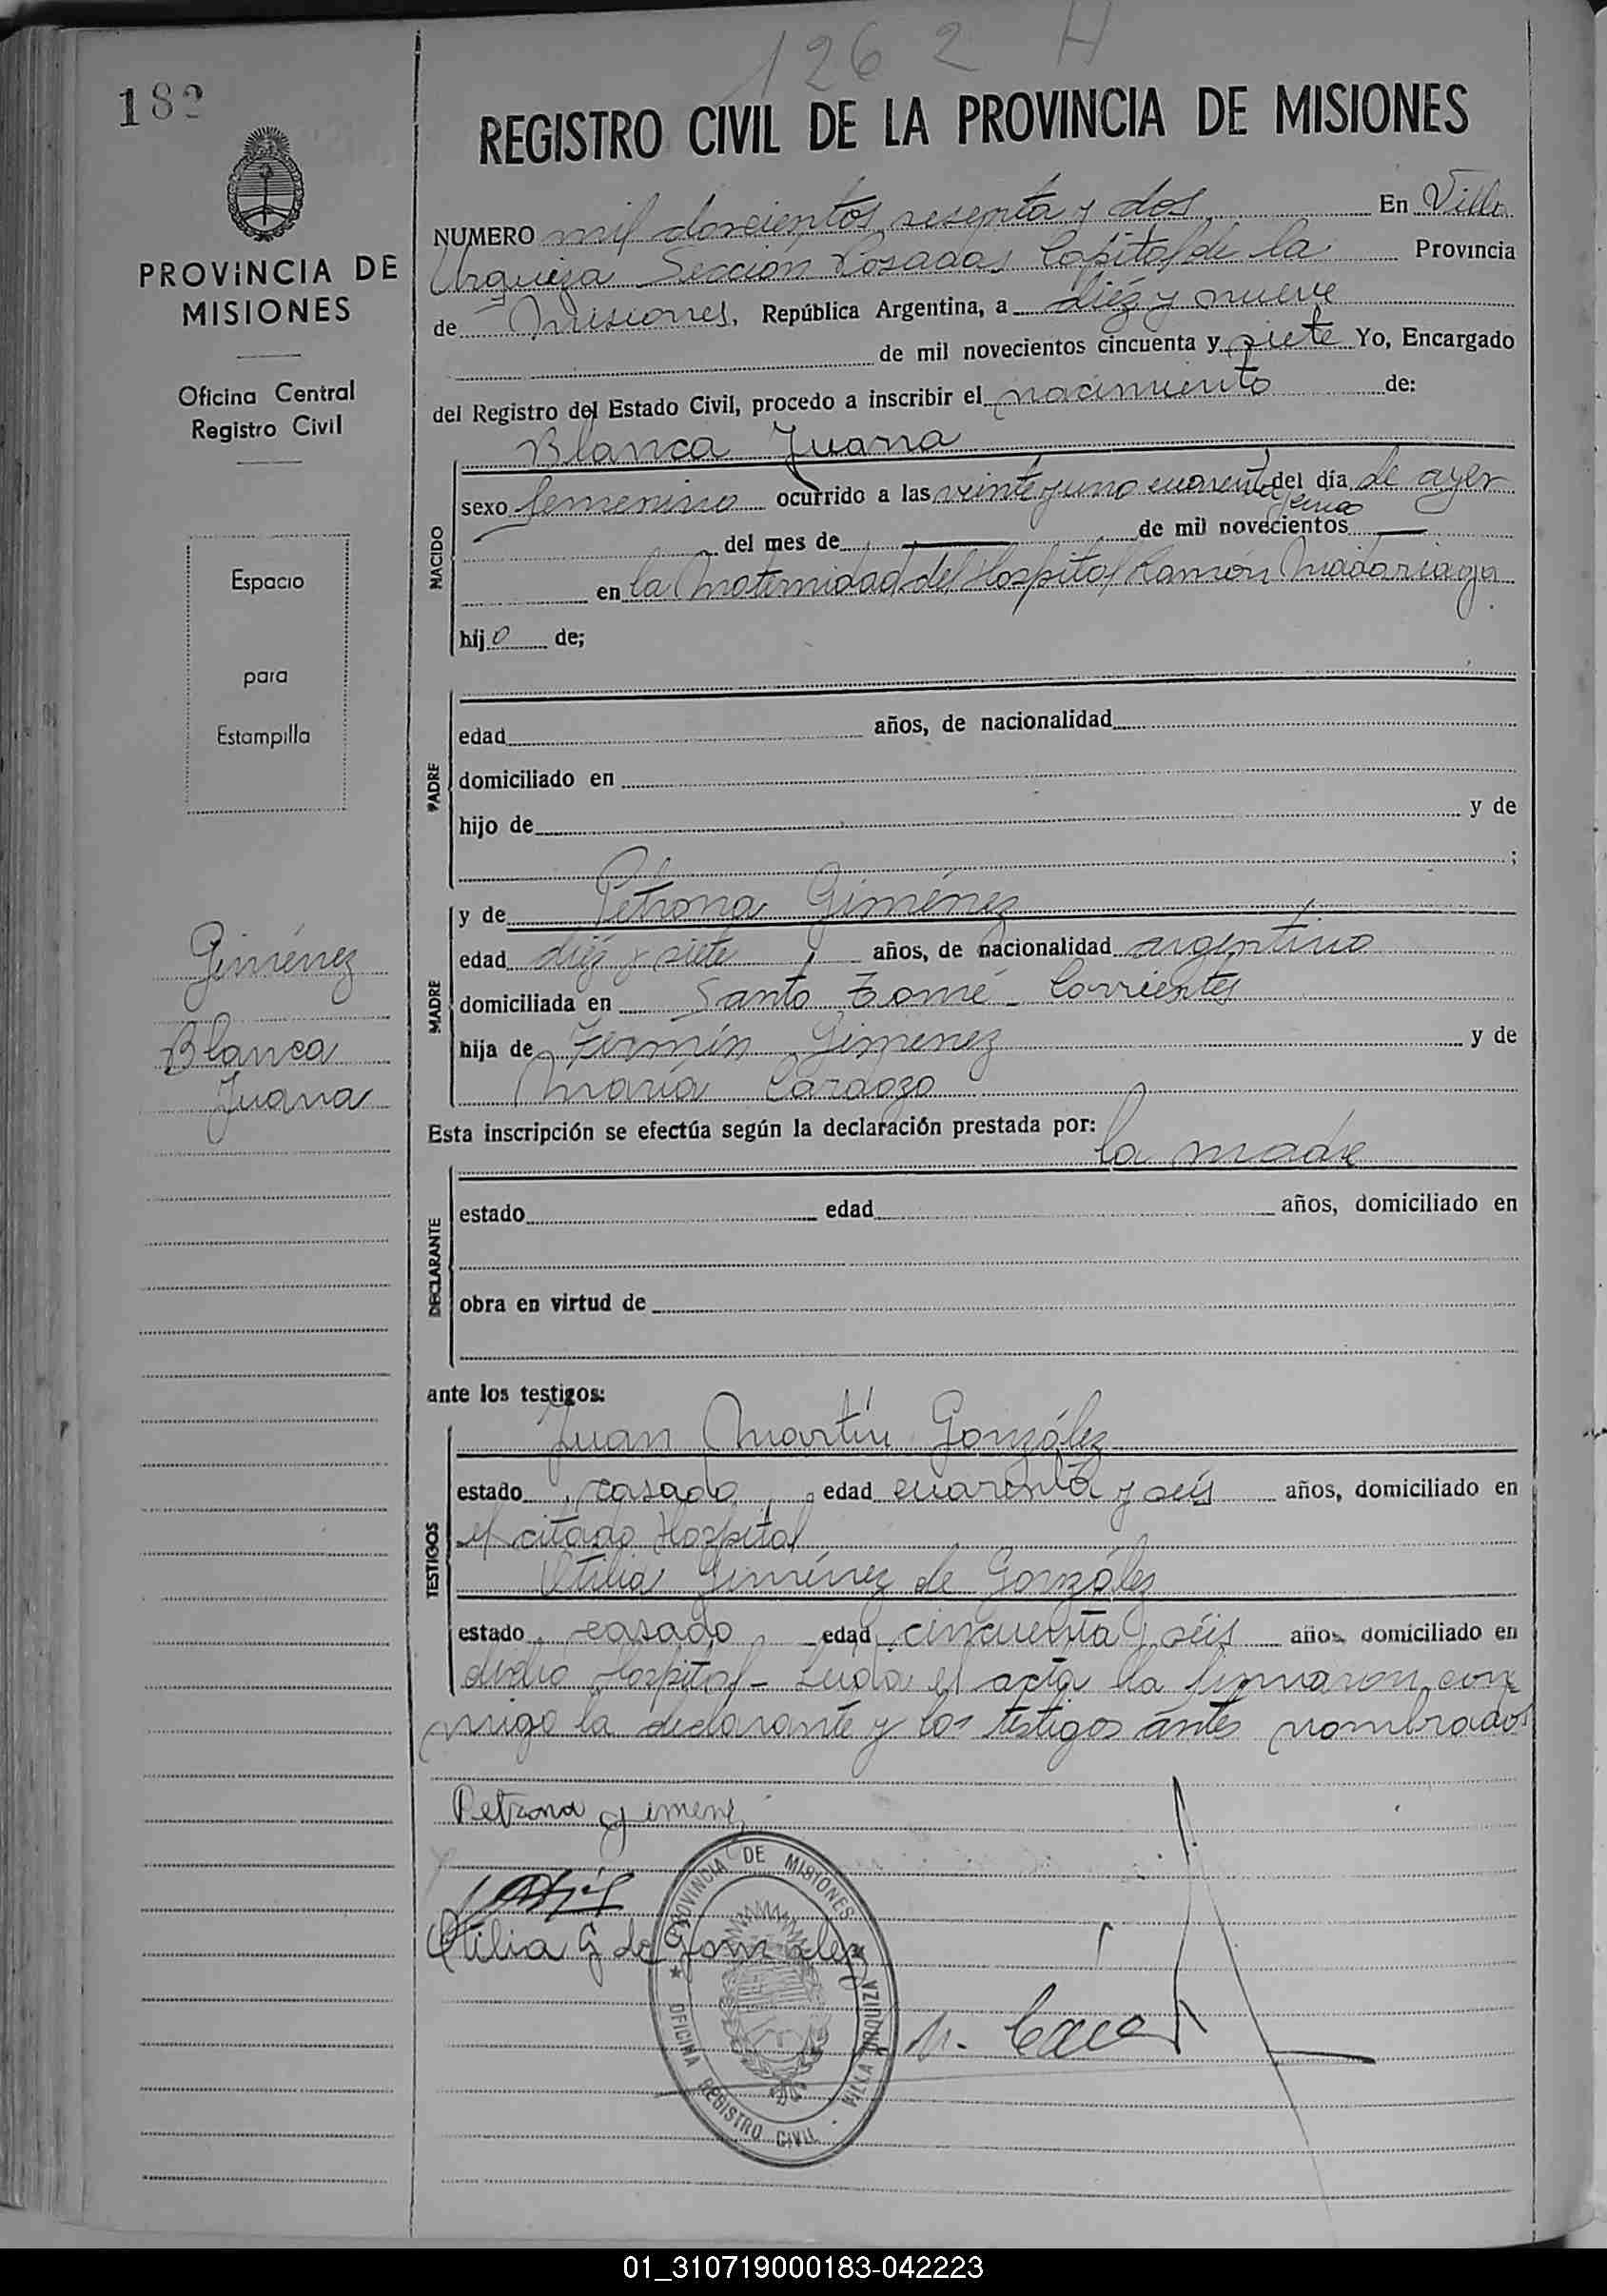 1262 H
182
REGISTRO CIVIL DE LA PROVINCIA DE MISIONES
PROVINCIA DE
MISIONES
Oficina Central
Registro Civil
Espacio
para
Estampilla
Giménez
Blanca
Juana
NUMERO mil doscientos sesenta y dos En Villa
Urquiza Sección Posadas Capital de la Provincia
de Misiones, República Argentina, a diéz y nueve
de mil novecientos cincuenta y siete Yo, Encargado
del Registro del Estado Civil, procedo a inscribir el nacimiento de:
Blanca Juana
NACIDO
sexo femenino ocurrido a las veinte y uno cuarenta del día de ayer
del mes de de mil novecientos
en la Maternidad del Hospital Ramón Madariaga
hijo de;
PADRE
edad años, de nacionalidad
domiciliado en
hijo de y de
;
y de Petrona Giménez
MADRE
edad diéz y siete años, de nacionalidad argentina
domiciliada en Santo Tomé - Corrientes
hija de Fermín Gimenez y de
María Cardozo
Esta inscripción se efectúa según la declaración prestada por:
la madre
DECLARANTE
estado edad años, domiciliado en
obra en virtud de
ante los testigos:
Juan Martín González
TESTIGOS
estado casado edad cuarenta y seis años, domiciliado en
el citado Hospital
Otilia Giménez de González
estado casada edad cincuenta y séis años domiciliado en
dicho Hospital - Leída el acta la firmaron con
migo la declarante y los testigos antes nombrados
Petrona gimenez
Otilia G de Gonzalez
PROVINCIA DE MISIONES
OFICINA REGISTRO CIVIL
VILLA URQUIZA
01_310719000183-042223